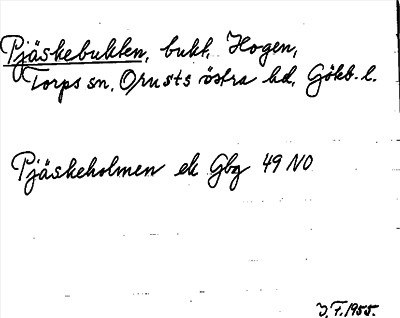 Pjäskebukten, bukt, Hogen,
Torps sn, Orusts östra hd, Gökb. l.
Pjäskeholmen ek Gbg 49 NO
J.F. 1955.